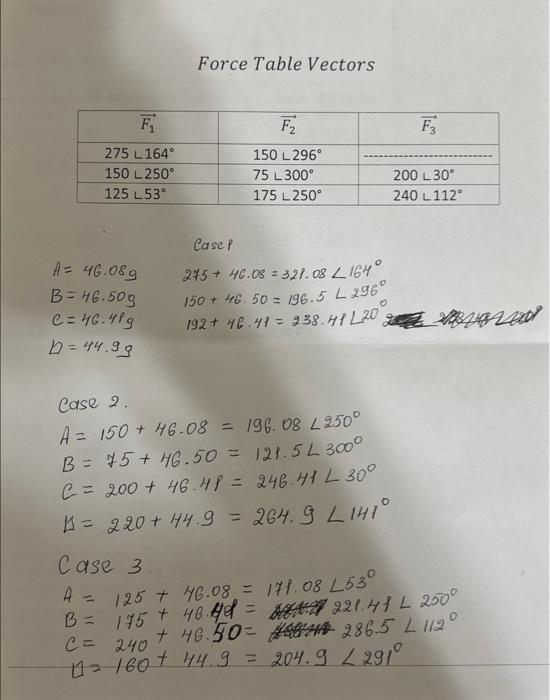 Force Table Vectors
F₁ F₂ F₃
275 ∟164° 150 ∟296° ----------------------------
150 ∟250° 75 ∟300° 200 ∟30°
125 ∟53° 175 ∟250° 240 ∟112°
Case 1
A = 46.08g 275 + 46.08 = 321.08 ∠164°
B = 46.50g 150 + 46.50 = 196.5 ∠296°
C = 46.41g 192 + 46.41 = 238.41 ∠20°
D = 44.9g
Case 2.
A = 150 + 46.08 = 196.08 ∠250°
B = 75 + 46.50 = 121.5 ∠300°
C = 200 + 46.41 = 246.41 ∠30°
D = 220 + 44.9 = 264.9 ∠141°
Case 3
A = 125 + 46.08 = 171.08 ∠53°
B = 175 + 46.41 = 221.41 ∠250°
C = 240 + 46.50 = 286.5 ∠112°
D = 160 + 44.9 = 204.9 ∠291°